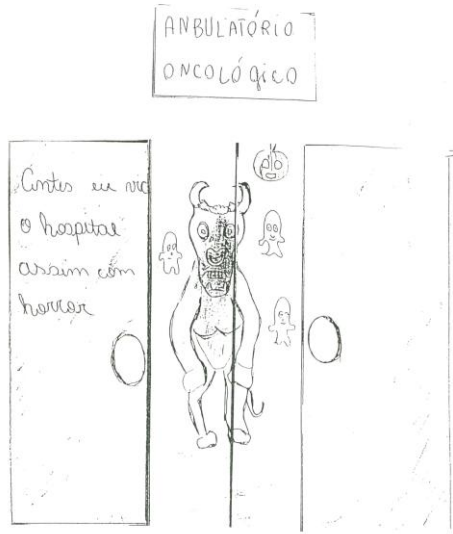 ANBULATÓRIO
ONCOLÓGICO
Antes eu via
o hospital
assim com
horror